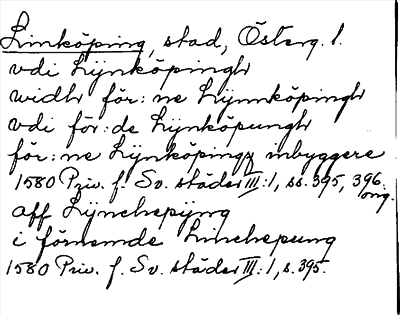 Linköping, stad, Österg. l.
vdi Lijnköpingh
widh för:ne Lijnnköpingh
vdi för:de Lijnköpungh
för:ne Lijnköpingz inbyggere
1580 Priv. f. Sv. städer III:1, ss. 395, 396.
orig.
aff Lijnchepijng
i förnemde Linchepung
1580 Priv. f. Sv. städer III:1, s. 395.